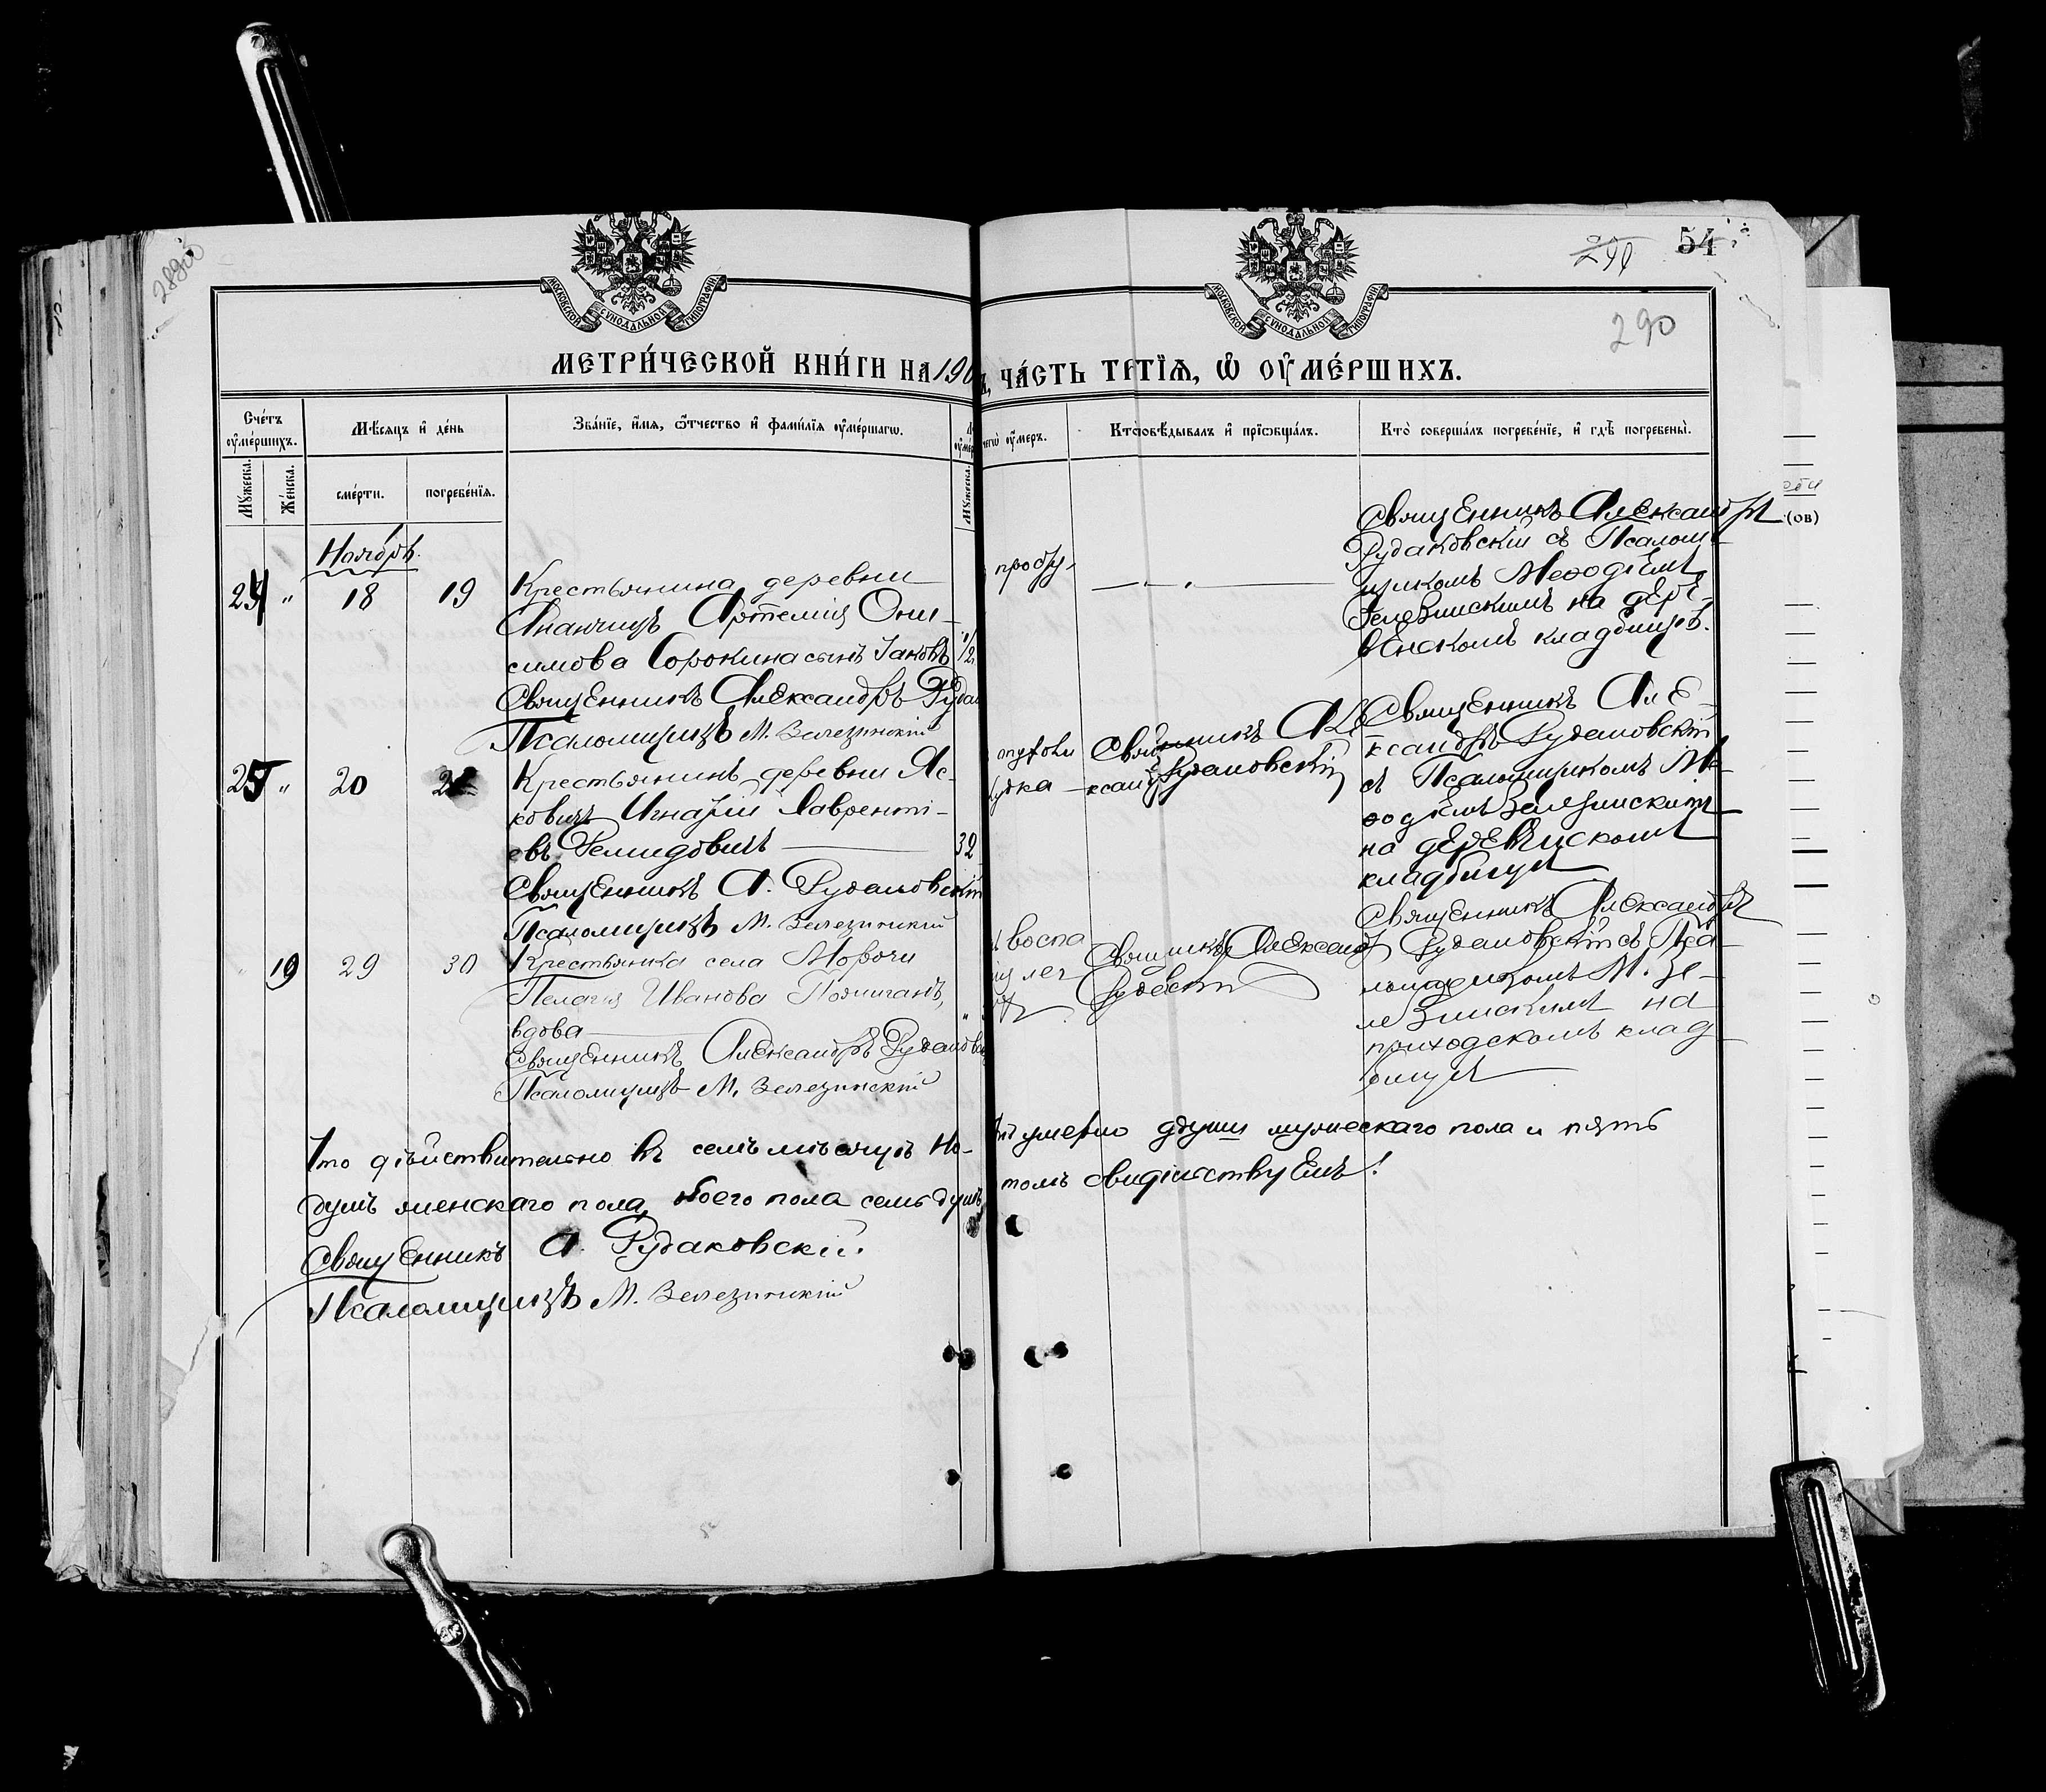 289об
54
290
290
МОСКОВСКОЙ СѴНОДАЛЬНОЙ ТИПОГРАФІИ
МОСКОВСКОЙ СѴНОДАЛЬНОЙ ТИПОГРАФІИ
МЕТРИ́ЧЕСКОЙ КНИ́ГИ НА 190
ЧА́СТЬ ТРТІѦ, Ѡ ОУМЕ́РШИХЪ.
Сче́тъ оуме́ршихъ.
Мѣсяцъ и де́нь
Зва́нїе, и́мя, ѻ́тчество и фами́лїя оуме́ршагѡ.
чегѡ оу́меръ.
Кто̀ овѣ́дывалъ и прїѡбща́лъ.
Кто̀ соверша́лъ погребе́нїе, и гдѣ̀ погребены̀.
Мꙋжеска.
Же́нска.
сме́рти.
погребе́нїя.
Мꙋжеска.
Ноябрь.
24 " 18 19
Крестьянина деревни
Ананчицъ Артемія Они-
симова Сорокина сынъ Іаковъ 1/2
Священникъ Александръ Рудак
Псаломщикъ М. Зелезинскій
просту-
Священникъ Александръ
Рудаковскій съ Псалом-
щикомъ Меѳодіемъ
Зелезинскимъ на дере-
венскомъ кладбищѣ.
25 " 20
Крестьянинъ деревни Яс-
ковичъ Игнатій Лавренті-
евъ Демидовичъ 32
Священникъ А. Рудаковскій
Псаломщикъ М. Зелезинскій
Священникъ Але-
ксандръ Рудаковскій
Священникъ Але-
ксандръ Рудаковскій
съ Псаломщикомъ Ме-
ѳодіемъ Зелезинскимъ
на деревенскомъ
кладбищѣ
" 19 29 30
Крестьянка села Морочи
Пелагія Иванова
вдова
Священникъ Александръ Рудаковс
Псаломщикъ М. Зелезинскій
воспа
лег
Священникъ Александ
Священникъ Александръ
Рудаковскій съ Пса-
ломщикомъ М. Зе-
лезинскимъ на
приходскомъ клад
бищѣ
Что дѣйствительно въ семъ мѣсяцѣ Но-
умерло души мужескаго пола и пять
душъ женскаго пола, обоего пола семь душъ
томъ свидѣтельствуемъ!
Священникъ А. Рудаковскій.
Псаломщикъ М. Зелезинскій
(ов)